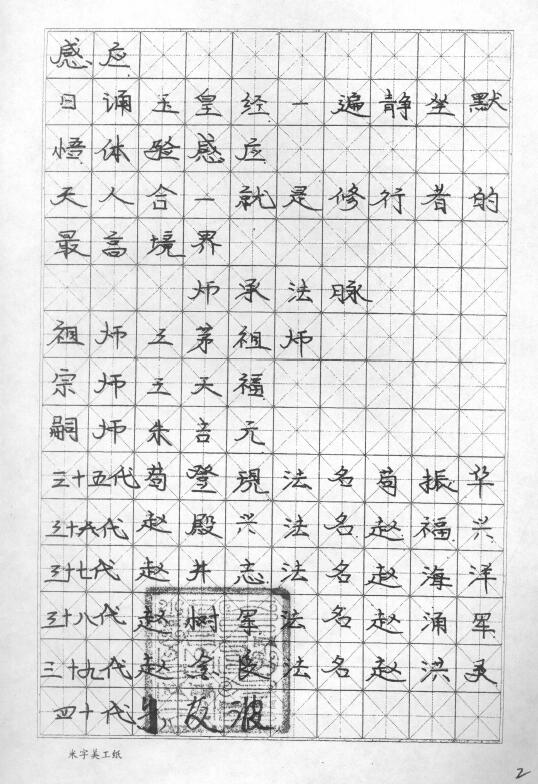 感应
日诵玉皇经一遍静坐默
悟体验感应
天人合一就是修行者的
最高境界
师承法脉
祖师 三茅祖师
宗师 王天福
嗣师朱吉元
三十五代荀登现法名荀振华
三十六代赵殿兴法名赵福兴
三十七代赵井志法名赵海洋
三十八代赵树军法名赵涌军
三十九代赵金良法名赵洪
四十代 波
米字美工纸
2